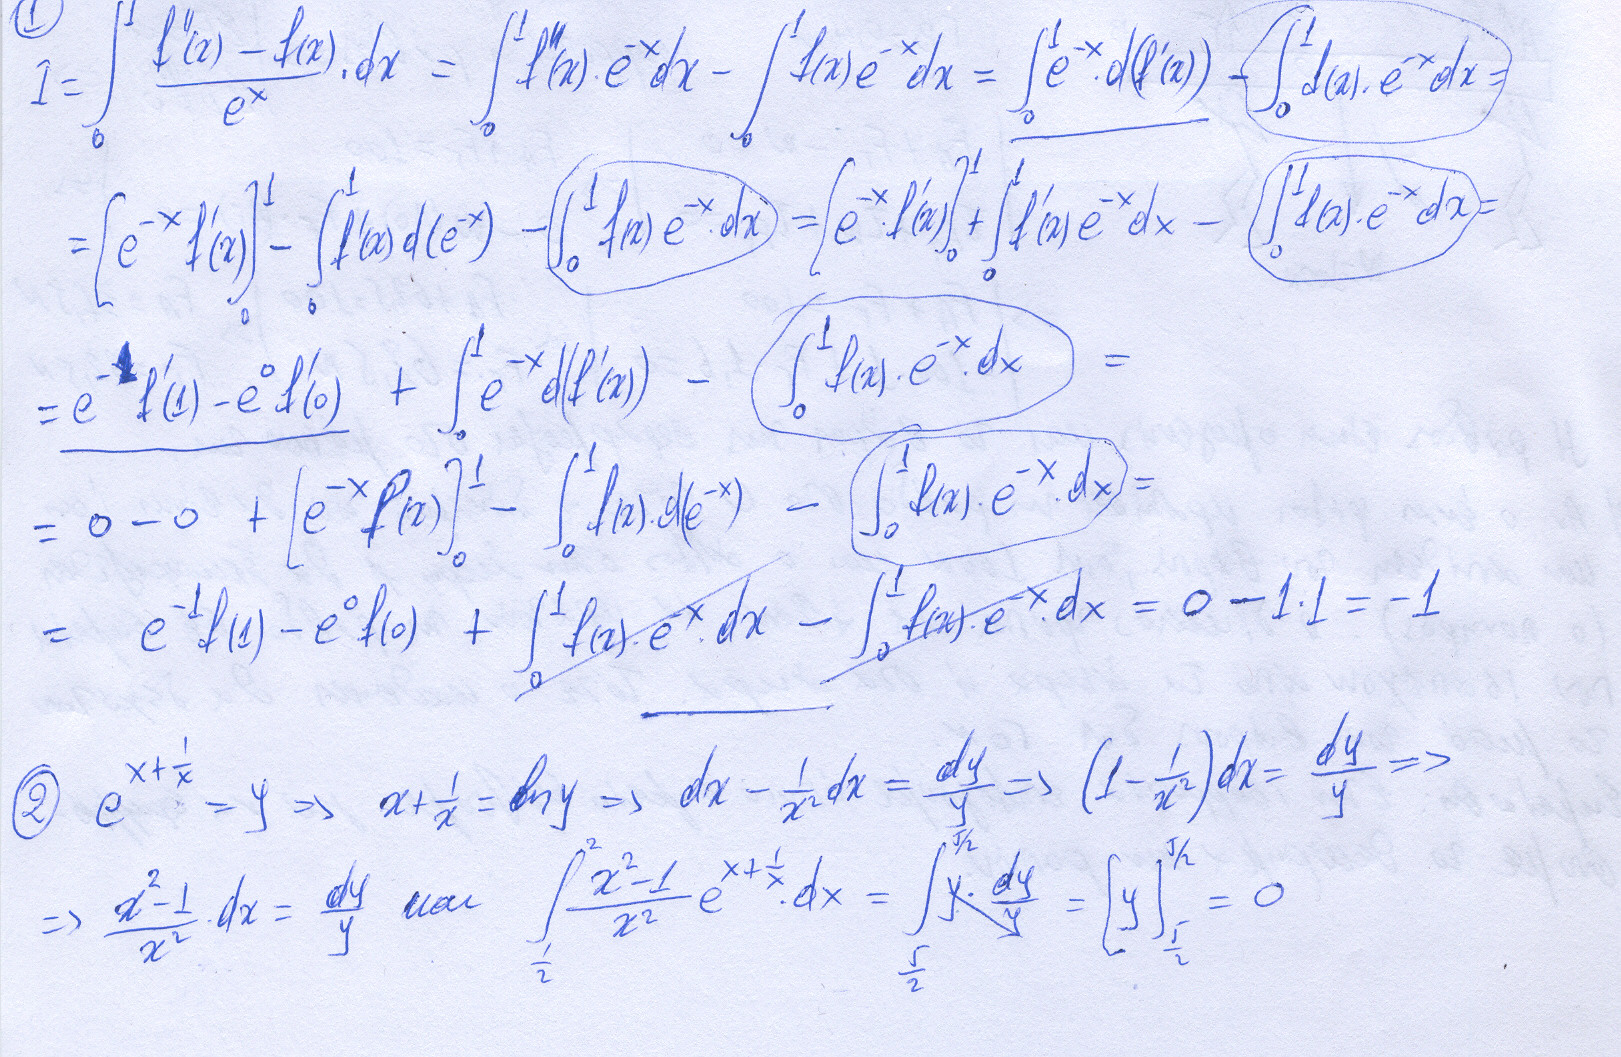 ①
I = ∫₀¹ (f''(x) − f(x))/eˣ . dx = ∫₀¹ f''(x) . e⁻ˣ dx − ∫₀¹ f(x) e⁻ˣ dx = ∫₀¹ e⁻ˣ . d(f'(x)) − ∫₀¹ f(x) . e⁻ˣ dx =
= [e⁻ˣ f'(x)]₀¹ − ∫₀¹ f'(x) d(e⁻ˣ) − ∫₀¹ f(x) e⁻ˣ . dx = [e⁻ˣ . f'(x)]₀¹ + ∫₀¹ f'(x) e⁻ˣ dx − ∫₀¹ f(x) . e⁻ˣ dx =
= e⁻¹ f'(1) − e⁰ f'(0) + ∫₀¹ e⁻ˣ d(f'(x)) − ∫₀¹ f(x) . e⁻ˣ . dx =
= 0 − 0 + [e⁻ˣ f(x)]₀¹ − ∫₀¹ f(x) . d(e⁻ˣ) − ∫₀¹ f(x) . e⁻ˣ . dx =
= e⁻¹ f(1) − e⁰ f(0) + ∫₀¹ f(x) . e⁻ˣ . dx − ∫₀¹ f(x) . e⁻ˣ . dx = 0 − 1 . 1 = −1
② e^(x+1/x) = y => x + 1/x = ln y => dx − 1/x² dx = dy/y => (1 − 1/x²) dx = dy/y =>
=> (x²−1)/x² . dx = dy/y και ∫_(1/2)^2 (x²−1)/x² e^(x+1/x) . dx = ∫_(5/2)^(5/2) y . dy/y = [y]_(5/2)^(5/2) = 0